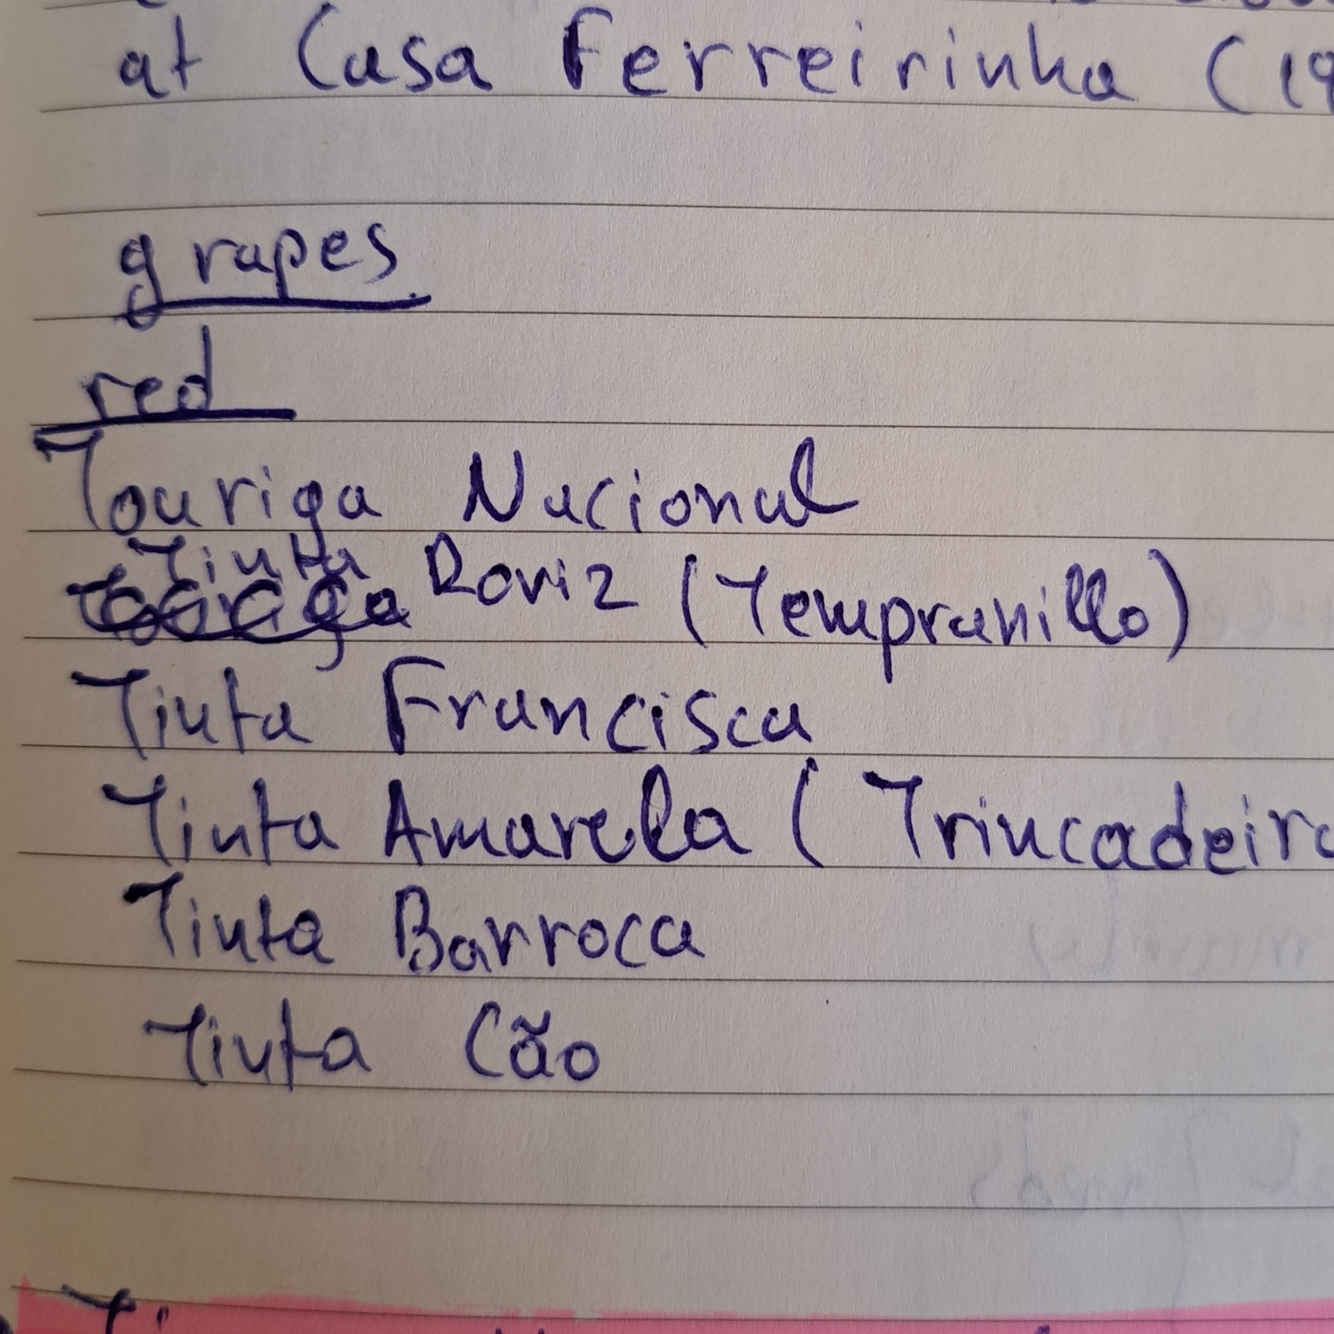 at Casa Ferreirinha (19
grapes
red
Touriga Nacional
Tinta Roriz (Tempranillo)
Tinta Francisca
Tinta Amarela (Trincadeira
Tinta Barroca
Tinta Cão